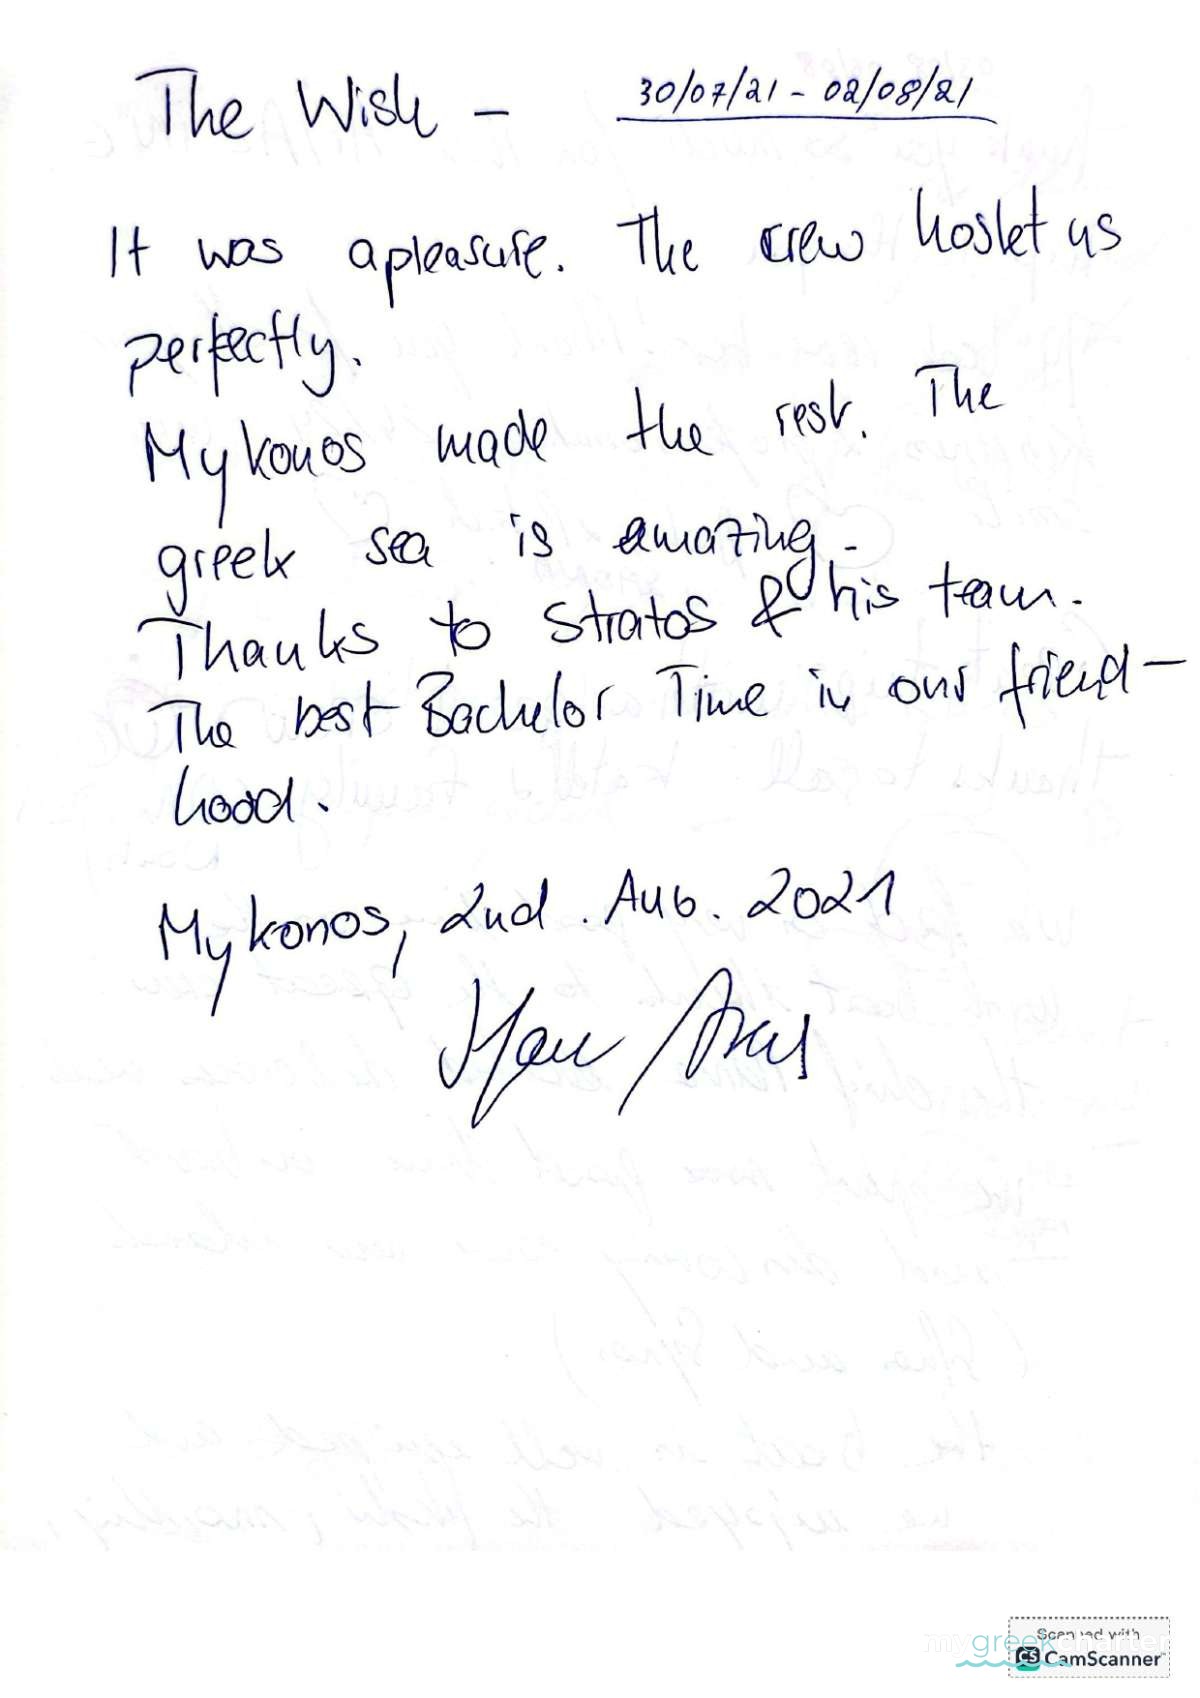 The Wish - 30/07/21 - 02/08/21
It was a pleasure. The crew hostet us
perfectly.
Mykonos made the rest. The
greek sea is amazing.
Thanks to Stratos & his team.
The best Bachelor Time in our friend-
hood.
Mykonos, 2nd. Aug. 2021
Scanned with
mygreekcharter
CS CamScanner